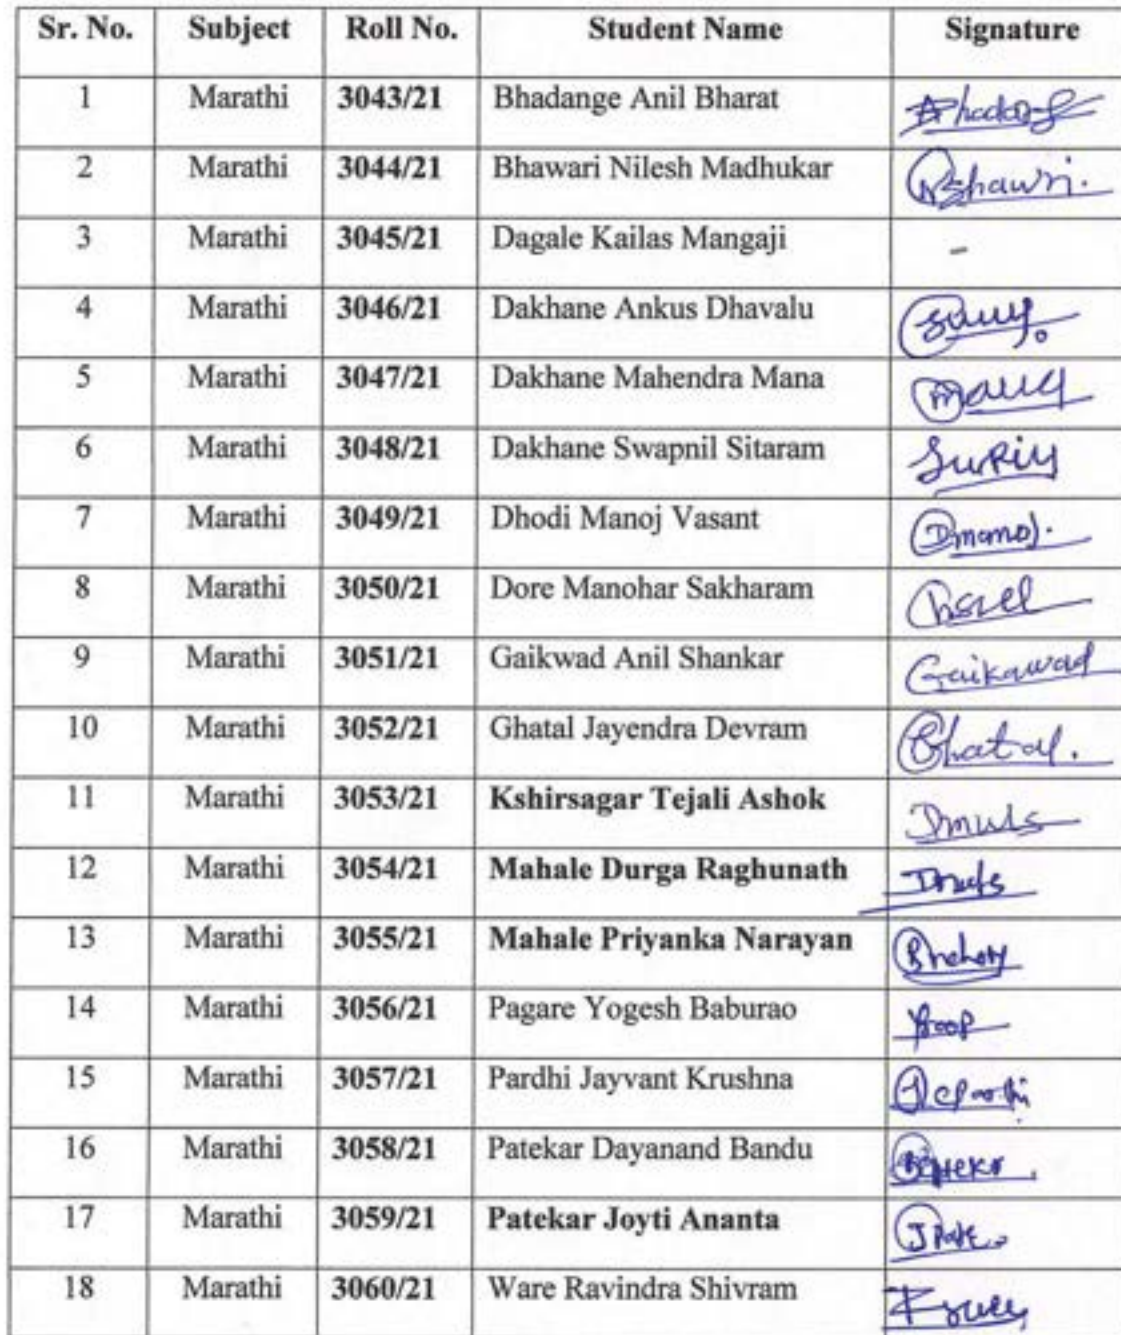 Sr. No. Subject Roll No. Student Name Signature
1 Marathi 3043/21 Bhadange Anil Bharat
2 Marathi 3044/21 Bhawari Nilesh Madhukar
3 Marathi 3045/21 Dagale Kailas Mangaji -
4 Marathi 3046/21 Dakhane Ankus Dhavalu
5 Marathi 3047/21 Dakhane Mahendra Mana
6 Marathi 3048/21 Dakhane Swapnil Sitaram
7 Marathi 3049/21 Dhodi Manoj Vasant
8 Marathi 3050/21 Dore Manohar Sakharam
9 Marathi 3051/21 Gaikwad Anil Shankar Gaikawad
10 Marathi 3052/21 Ghatal Jayendra Devram
11 Marathi 3053/21 Kshirsagar Tejali Ashok
12 Marathi 3054/21 Mahale Durga Raghunath
13 Marathi 3055/21 Mahale Priyanka Narayan
14 Marathi 3056/21 Pagare Yogesh Baburao
15 Marathi 3057/21 Pardhi Jayvant Krushna
16 Marathi 3058/21 Patekar Dayanand Bandu
17 Marathi 3059/21 Patekar Joyti Ananta
18 Marathi 3060/21 Ware Ravindra Shivram